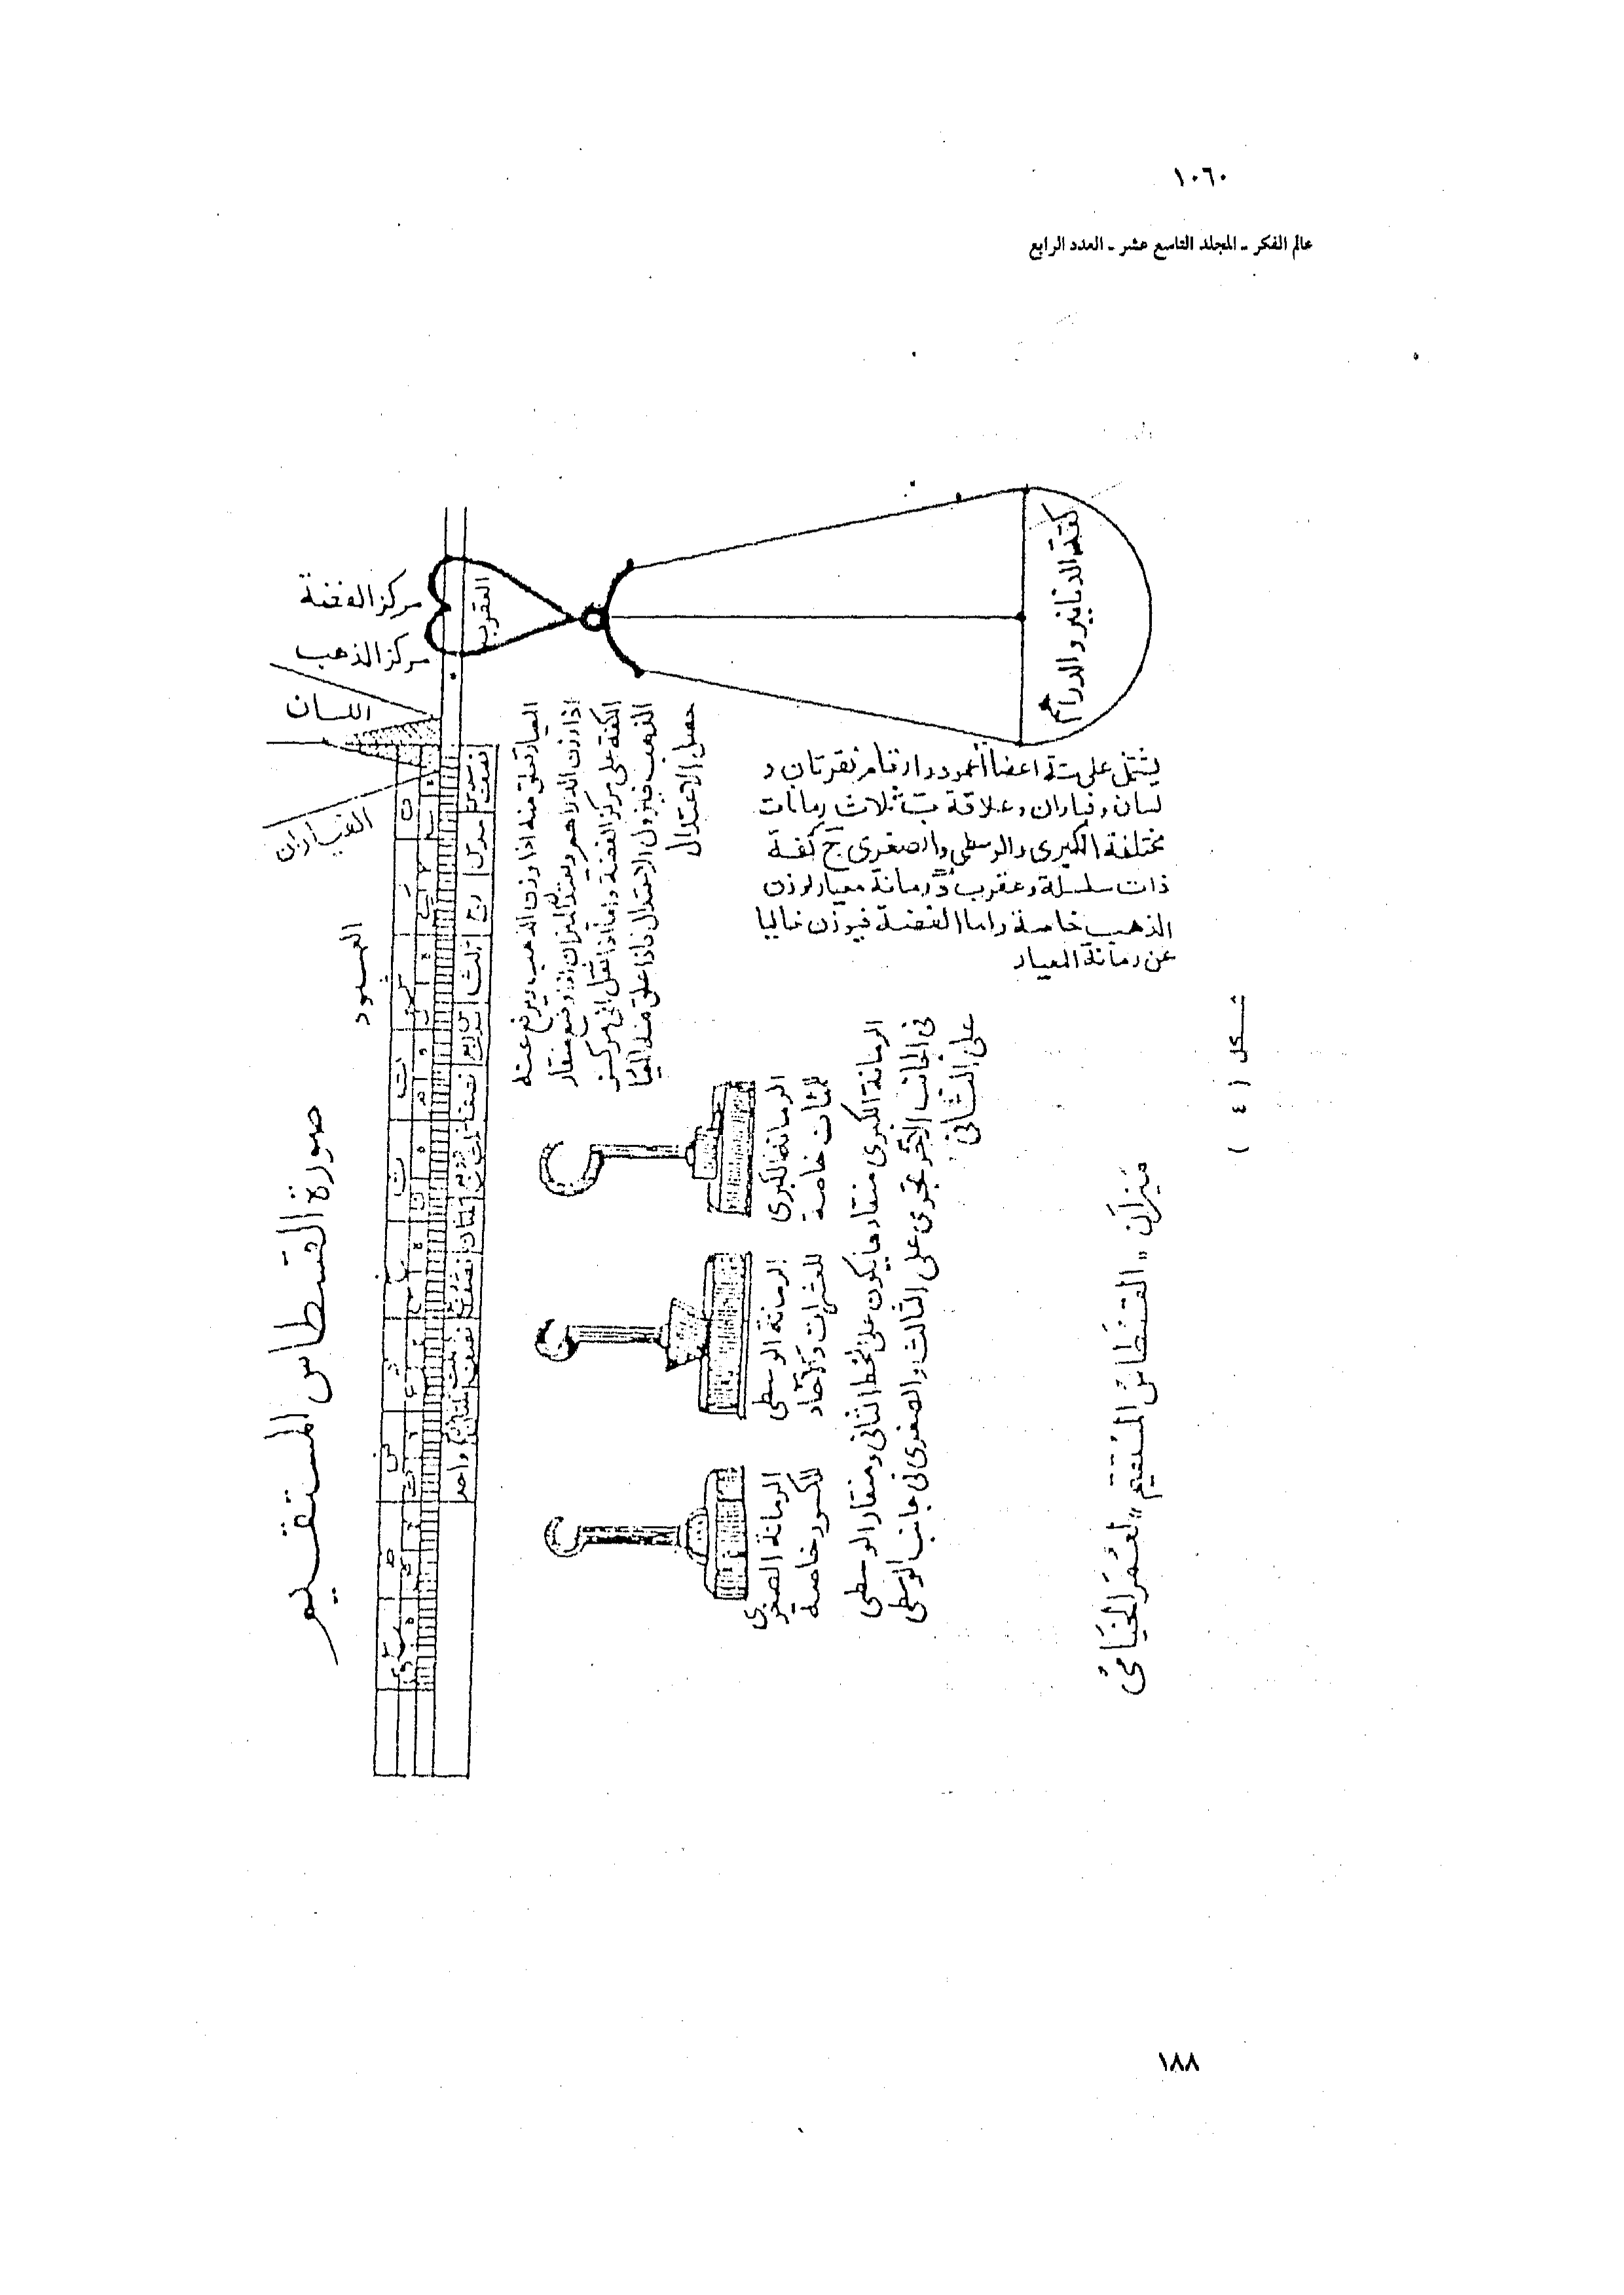 ١٠٦٠
عالم الفكر - المجلد التاسع عشر - العدد الرابع
صورة القسطاس المستقيم
مركز الفضة
مركز الذهب
اللسان
الفياران
العمود
العقرب
كفة الدنانير والدراهم
المعيار تعلق منه اذا وزن الذهب ويرفع عنه
اذا وزن الدراهم ويعتدل الميزان اذا وضع منقار
الكفة على مركز الفضة واما اذا نقل الى مركز
الذهب فيزول الاعتدال فاذا علق منه المعيار
حصل الاعتدال
يشتمل على ستة اعضا أ عمود وارقام نقرتان و
لسان وفياران وعلاقة ب ثلاث رمانات
مختلفة الكبرى والوسطى والصغرى ج كفة
ذات سلسلة وعقرب د رمانة معيار لوزن
الذهب خاصة واما الفضة فيوزن خاليا
عن رمانة المعيار
الرمانة الكبرى
للمئات خاصة
الرمانة الوسطى
للعشرات والآحاد
الرمانة الصغرى
للكسور خاصة
الرمانة الكبرى منقارها يكون على الخط الثانى ومنقار الوسطى
فى الجانب الآخر تحوى على الثالث والصغرى فى جانب الوسطى
على الثانى
ميزان "القسطاس المستقيم" لعمر الخيامى
شكل ( ٤ )
١٨٨